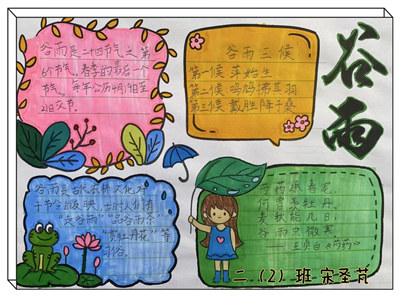 谷雨
谷雨是二十四节气之第
6个节气,春季的最后一个
节气,每年公历4月19日至
21日交节。
谷雨三候
第一候 萍始生
第二候 鸣鸠拂其羽
第三候 戴胜降于桑
谷雨是古代农耕文化对
于节令的反映,古时人们有
"走谷雨""品谷雨茶"
"赏牡丹花"等
习俗。
麦秋能几日
谷雨只微寒
二(2)班 宋圣芃